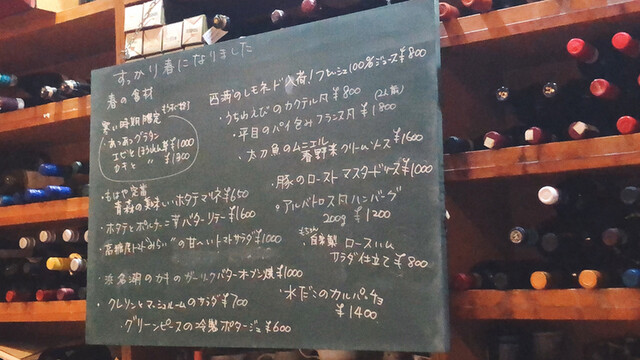 すっかり春になりました
春の食材
寒い時期限定
・あつあつグラタン
エビとほうれん草 ¥1000
カキと 〃 ¥1300
・もはや定番
青森の美味しいホタテマリネ ¥650
・ホタテとポルチーニ茸バターソテー ¥1600
・高糖度トマト の甘〜いトマトサラダ ¥1000
・浜名湖のカキのガーリックバターオーブン焼 ¥1000
・クレソンとマッシュルームのサラダ ¥700
・グリーンピースの冷製ポタージュ ¥600
西 のレモネード入荷！フレッシュ100%ジュース ¥800
・うちわえびのカクテル風 ¥800
・平目のパイ包みフランス風 ¥1800 (2人前)
・太刀魚のムニエル
春野菜クリームソース ¥1600
・豚のローストマスタードソース ¥1000
・アルバトロス風ハンバーグ
200g ¥1200
・自家製ロースハム
サラダ仕立て ¥800
・水だこのカルパッチョ
¥1400